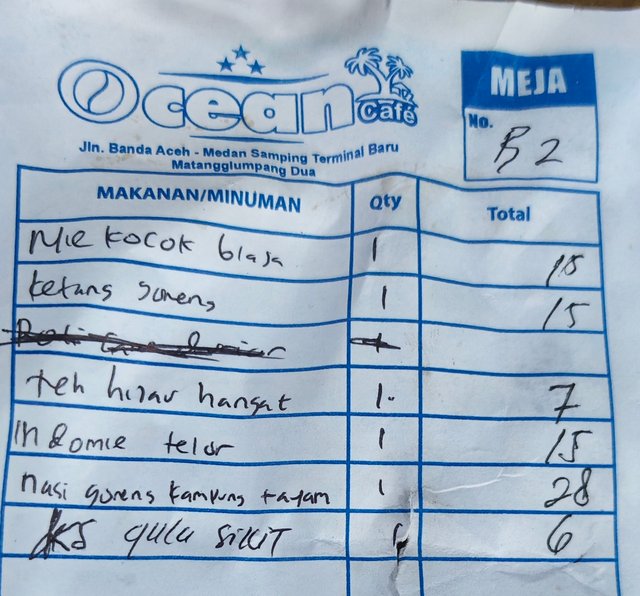 Ocean Café
Jln. Banda Aceh - Medan Samping Terminal Baru
Matangglumpang Dua
MEJA
No. B2
MAKANAN/MINUMAN Qty Total
Mie kocok biasa 1 15
ketang goreng 1 15
teh hijau hangat 1 7
Indomie telor 1 15
nasi goreng kampung tayam 1 28
gula sikit 6